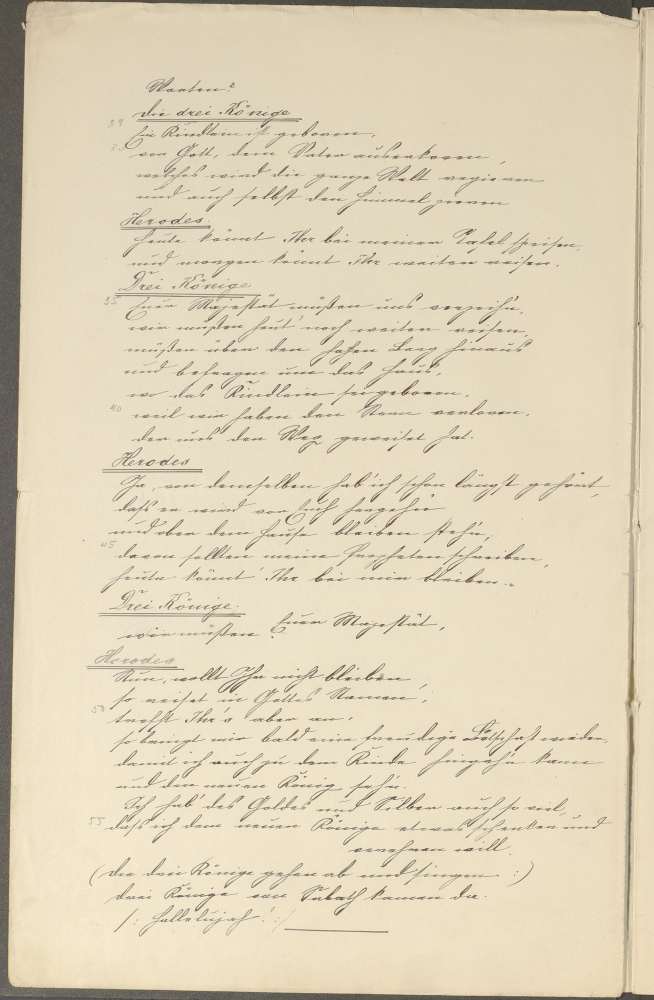 Warten?
Die drei Könige
Ein Kindlein ist geboren,
von Gott, dem Vater auserkoren,
welches wird die ganze Welt regieren
und auch selbst den Himmel zieren
Herodes.
Heute könnt Ihr bei meiner Tafel speisen,
und morgen könnt Ihr weiter reisen.
Drei Könige
35 Euer Majestät müßen uns verzeih'n,
wir müßen heut' noch weiter reisen,
müßen über den hohen Berg hinaus
und befragen um das Haus,
wo das Kindlein sei geboren,
40 weil wir haben den Stern verloren,
der uns den Weg geweiset hat.
Herodes
Ja, von demselben hab' ich schon längst gehört,
daß er wird vor Euch hergeh'n
und ober dem Hause bleiben steh'n,
45 davon sollten meine Propheten schreiben,
heute könnt' Ihr bei mir bleiben.
Drei Könige.
wir müßen Euer Majestät,
Herodes
Nun, wollt Ihr nicht bleiben,
so reiset in Gottes Namen,
50 trefft Ihr's aber an,
so bringt mir bald eine freudige Botschaft wieder,
damit ich auch zu dem Kinde hingeh'n kann
und den neuen König seh'n.
Ich hab' des Goldes und Silber auch so viel,
55 daß ich dem neuen König etwas schenken und
verehren will.
(Die drei Könige gehen ab und singen :)
drei Könige von Sabath kamen da.
/: Hallelujah! :/